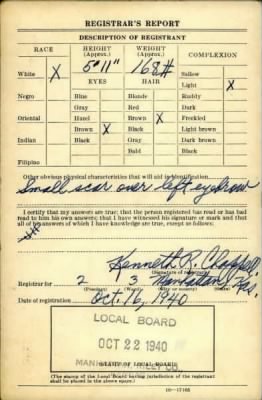 REGISTRAR'S REPORT
DESCRIPTION OF REGISTRANT
RACE HEIGHT (Approx.) WEIGHT (Approx.) COMPLEXION
White X 5' 11" 168# Sallow
EYES HAIR Light X
Negro Blue Blonde Ruddy
Gray Red Dark
Oriental Hazel Brown X Freckled
Brown X Black Light brown
Indian Black Gray Dark brown
Bald Black
Filipino
Other obvious physical characteristics that will aid in identification
Small scar over left eyebrow
I certify that my answers are true; that the person registered has read or has had
read to him his own answers; that I have witnessed his signature or mark and that
all of his answers of which I have knowledge are true, except as follows:
Kenneth R. Chappell
(Signature of registrar)
Registrar for 2 3 Manhattan Kas.
(Precinct) (Ward) (City or county) (State)
Date of registration Oct. 16, 1940
LOCAL BOARD
OCT 22 1940
STAMP OF LOCAL BOARD
(The stamp of the Local Board having jurisdiction of the registrant
shall be placed in the above space.)